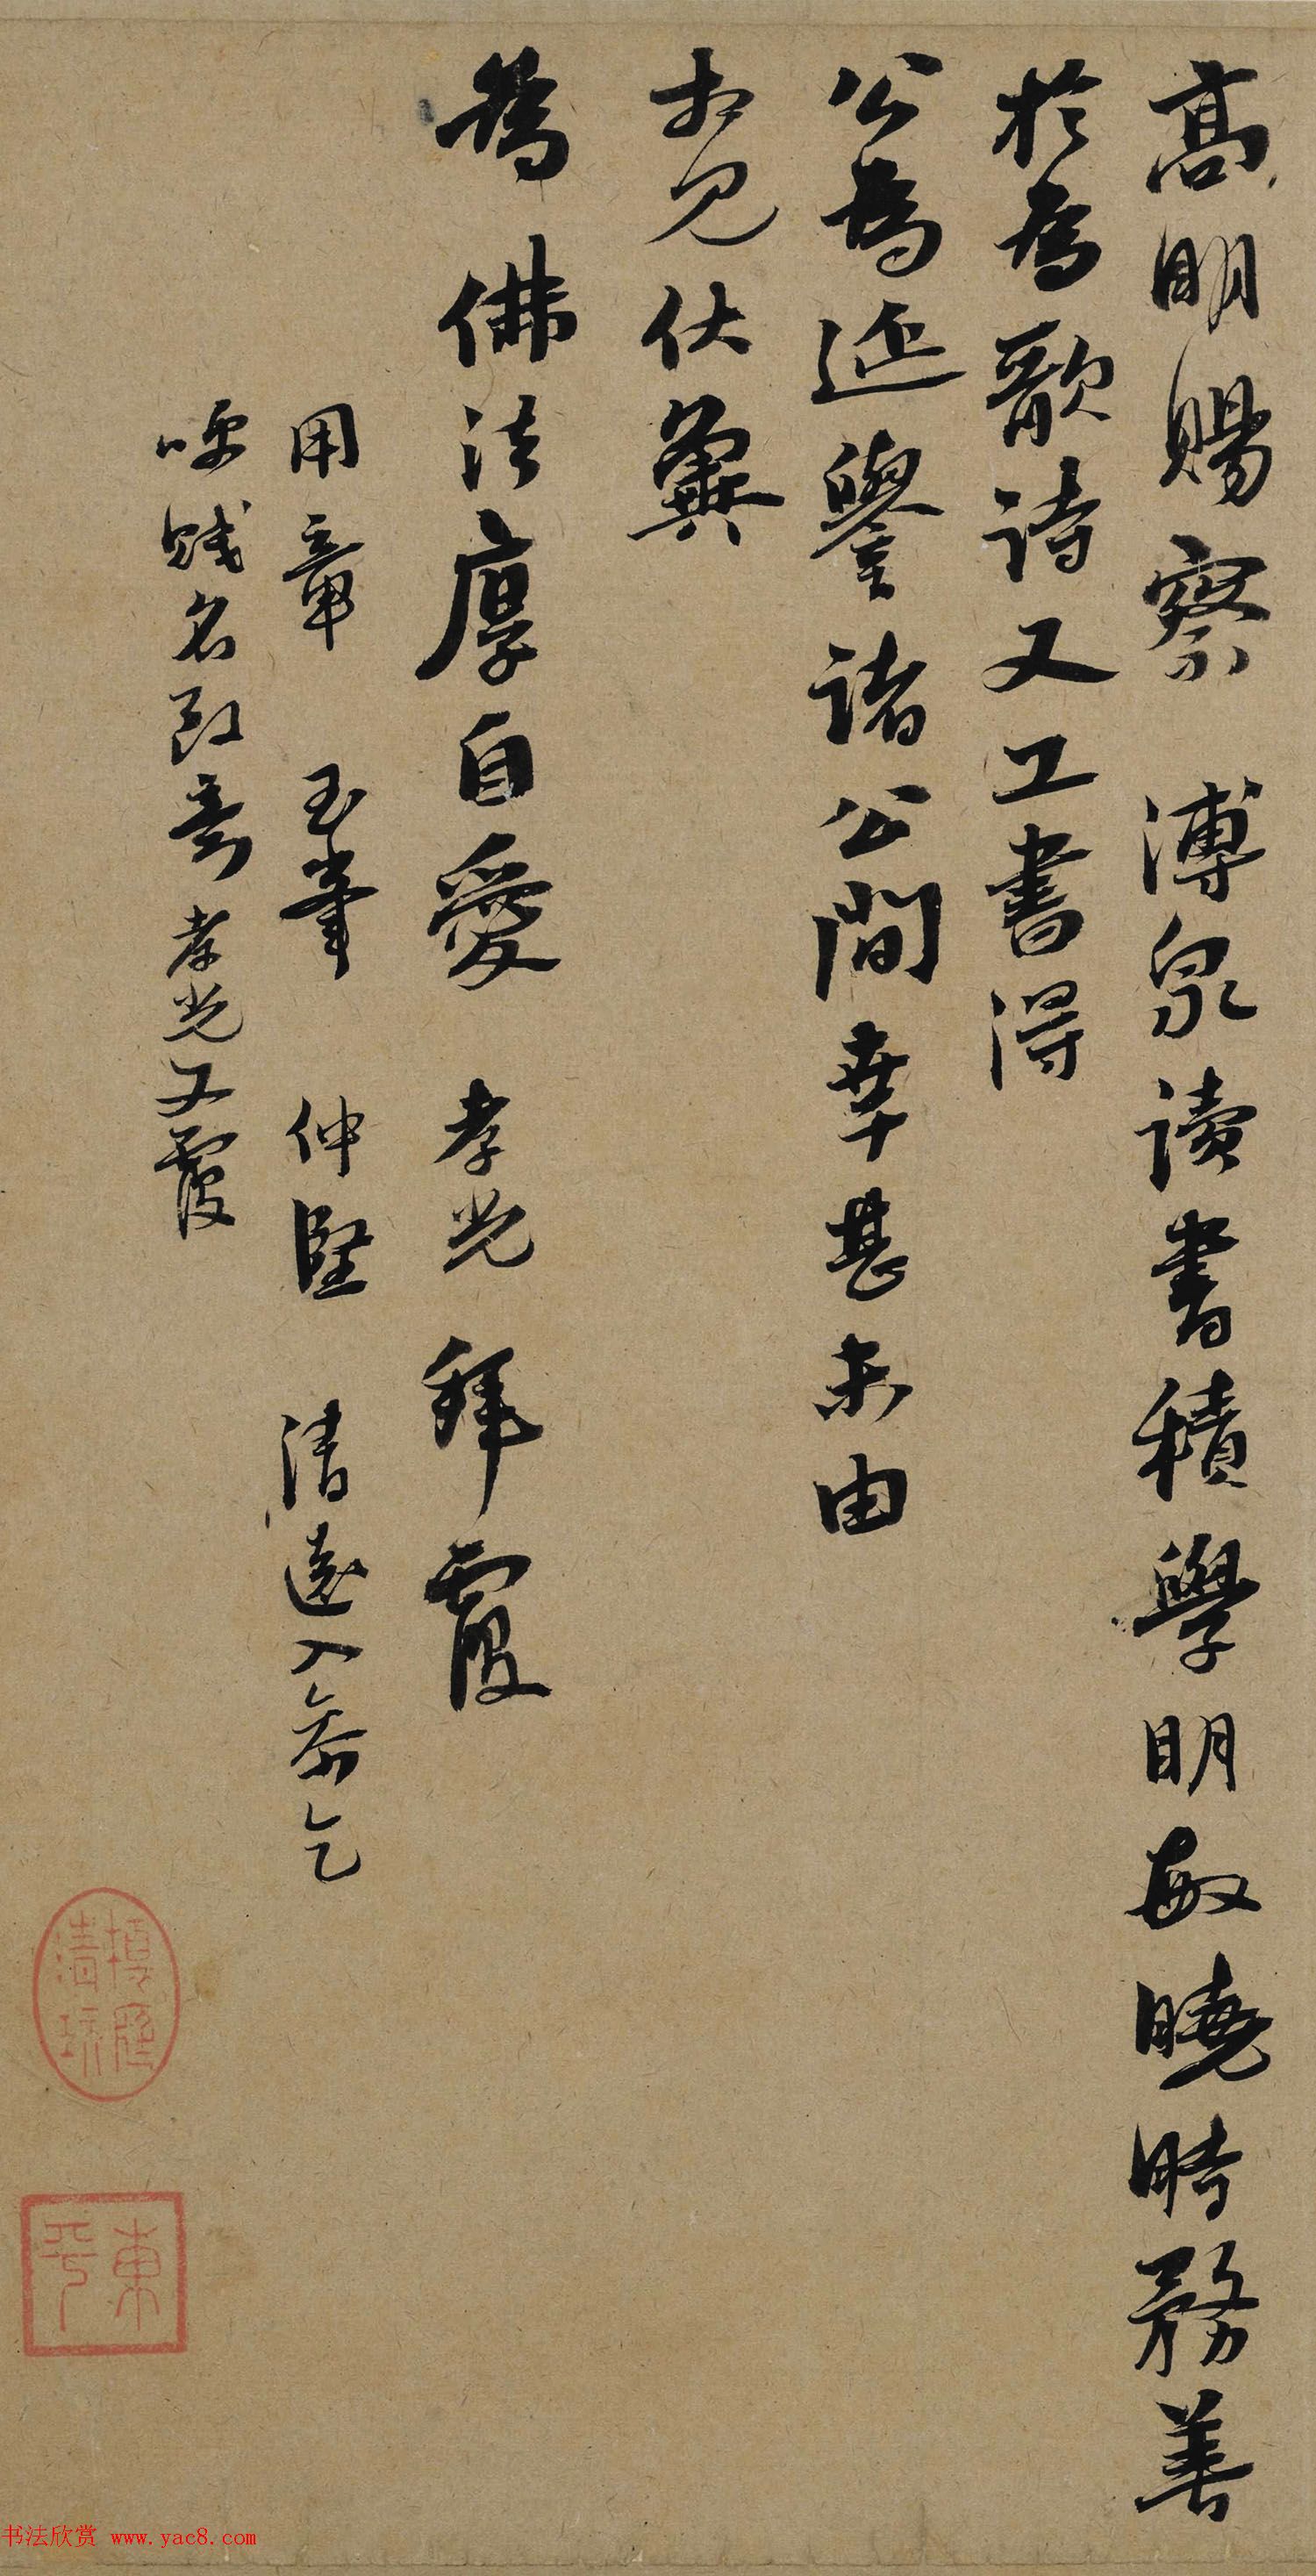 高明賜察 溥泉讀書積學明敏曉時務善
於為歌詩又工書得
公為延譽諸公間幸甚未由
相見伏冀
為佛法厚自愛 孝光拜覆
用章 玉峯 仲堅 清遠入參乞
呼賤名致意 孝光又覆
清
東平
书法欣赏 www.yac8.com